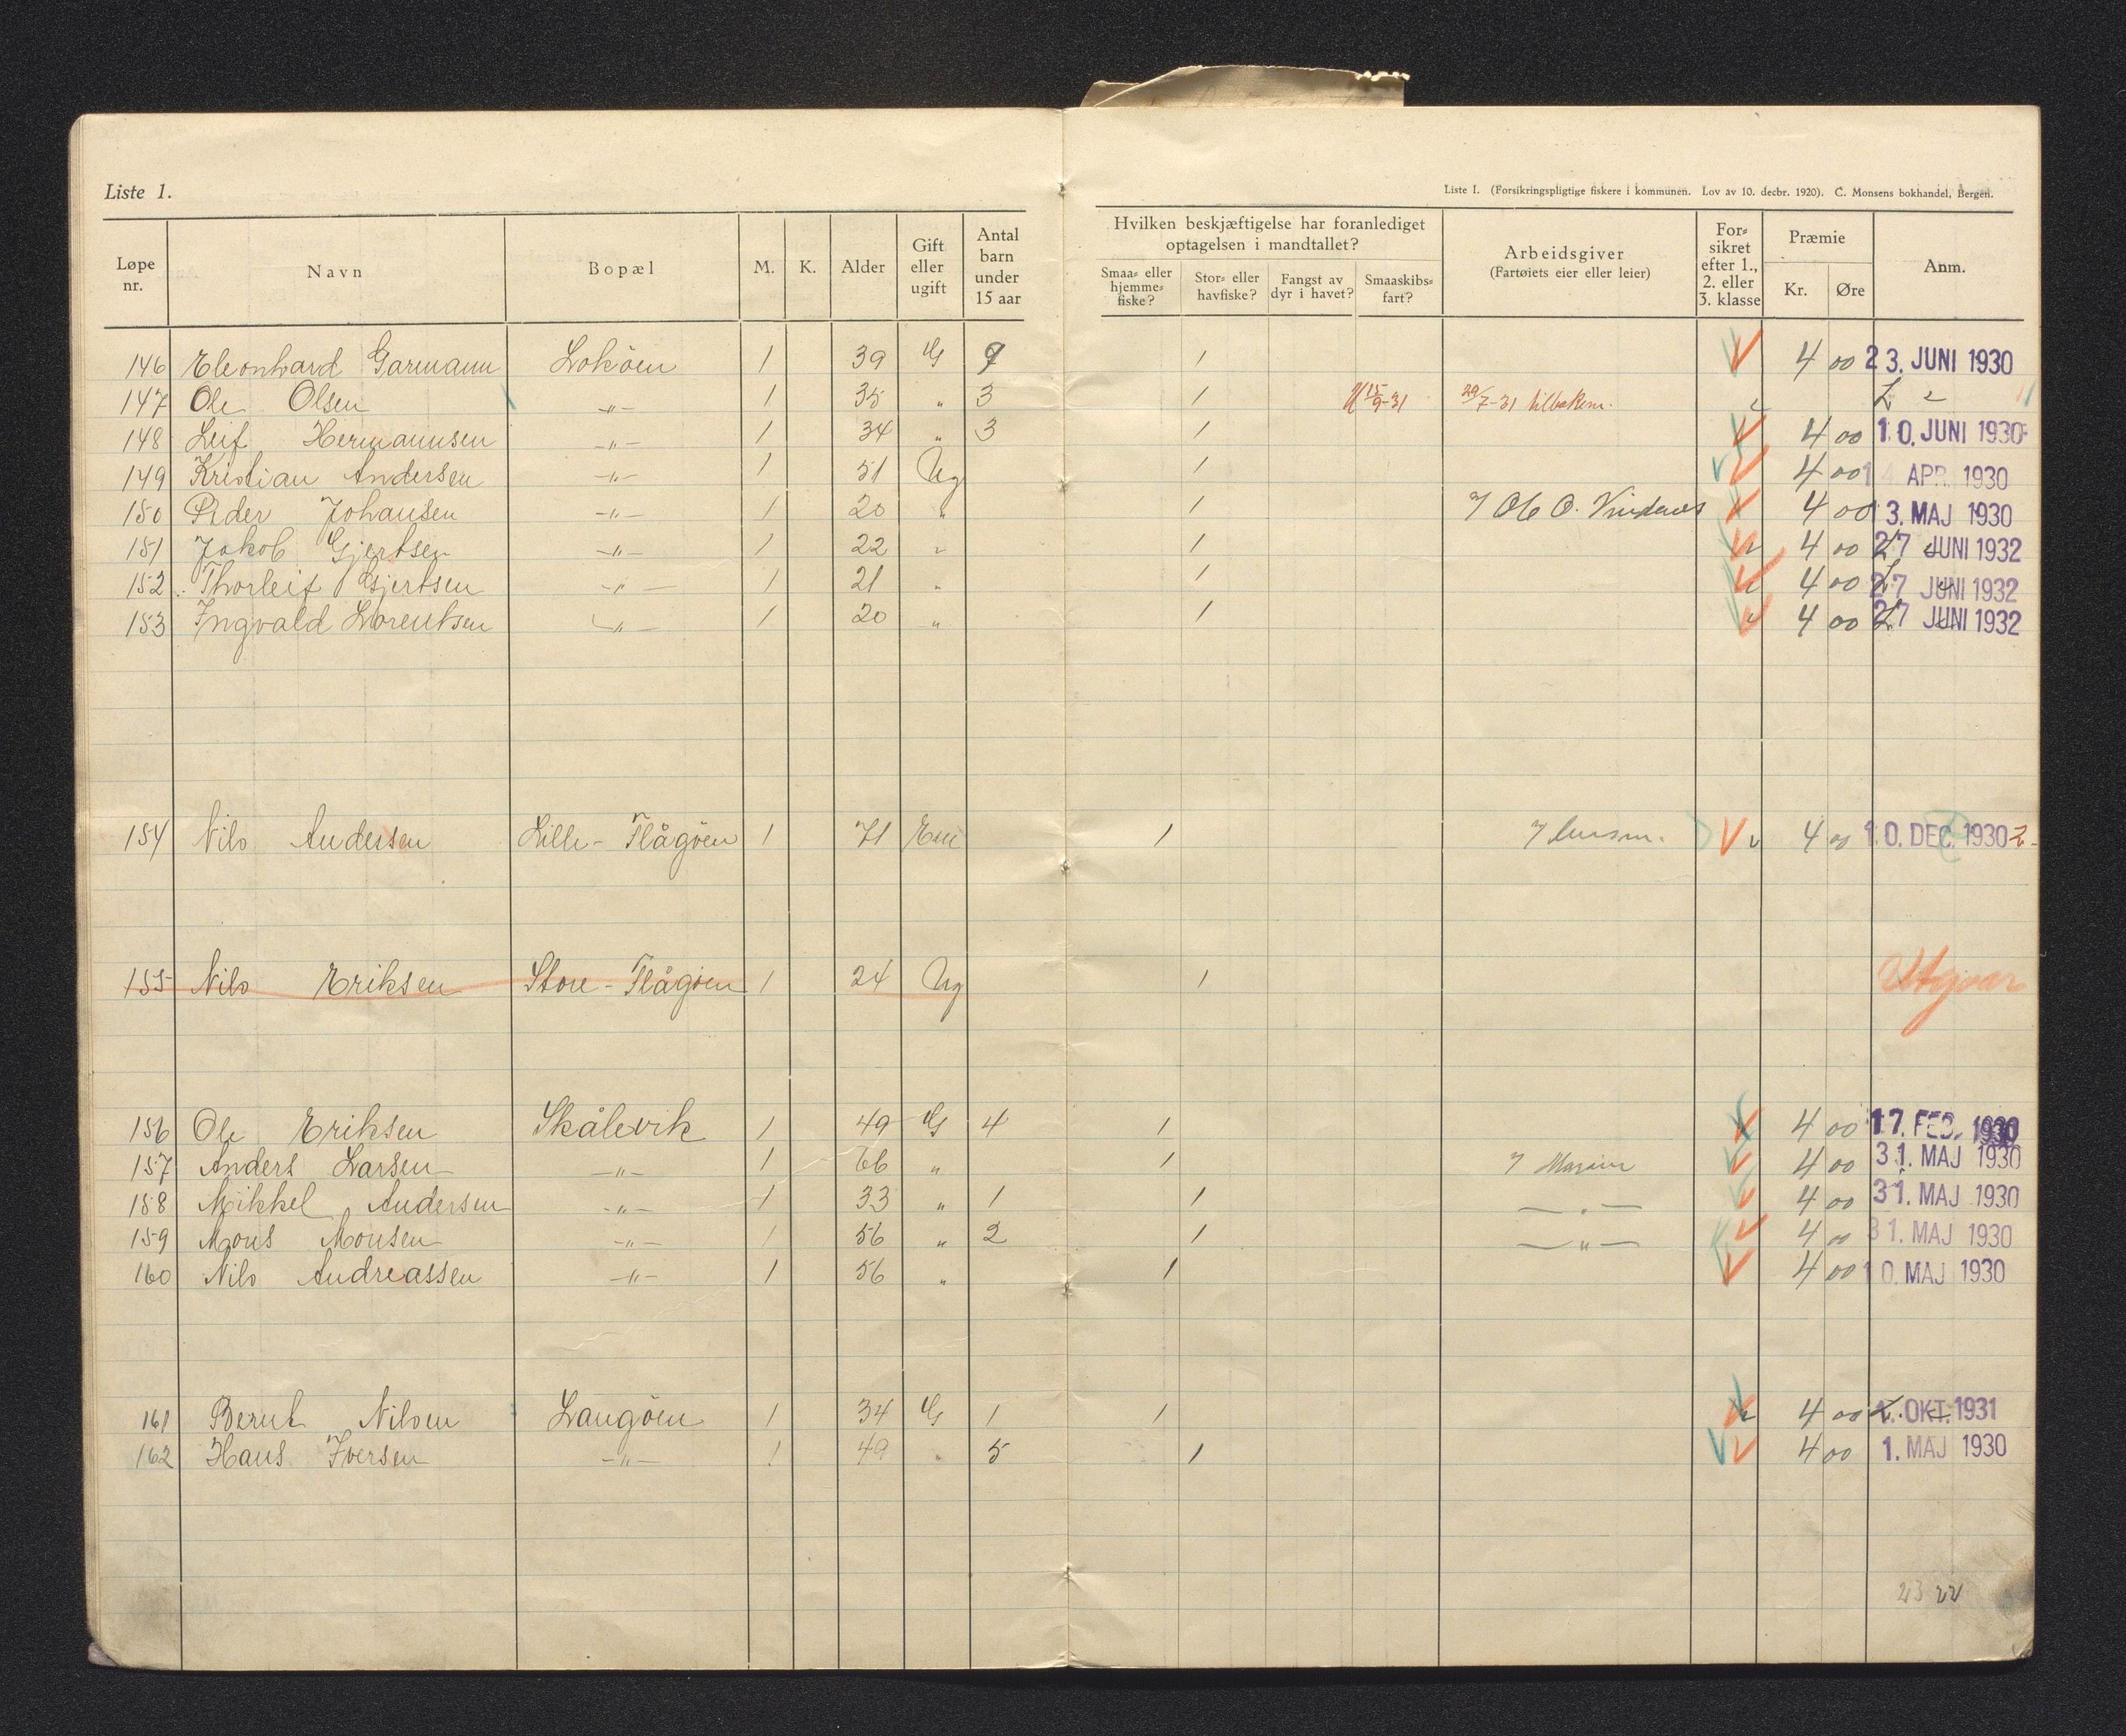 Liste 1.
Liste I. (Forsikringspligtige fiskere i kommunen. Lov av 10. decbr. 1920). C. Monsens bokhandel, Bergen.
Løpe nr. Navn Bopæl M. K. Alder Gift eller ugift Antal barn under 15 aar Hvilken beskjæftigelse har foranlediget optagelsen i mandtallet? Smaa- eller hjemme-fiske? Stor- eller havfiske? Fangst av dyr i havet? Smaaskibs-fart? Arbeidsgiver (Fartøiets eier eller leier) For-sikret efter 1., 2. eller 3. klasse Præmie Kr. Øre Anm.
146 Eleonhard Garmann Lokøen 1 39 G 1 4 00 23. JUNI 1930
147 Ole Olsen -"- 1 35 " 3 1 15/9-31 29/7-31 tilbakem.
148 Leif Hermannsen -"- 1 34 " 3 1 4 00 10. JUNI 1930
149 Kristian Andersen -"- 1 51 Ug 1 4 00 APR. 1930
150 Peder Johansen -"- 1 20 " 1 Ole O. 4 00 13. MAJ 1930
151 Jakob Gjertsen -"- 1 22 " 1 4 00 27 JUNI 1932
152 Thorleif Gjertsen -"- 1 21 " 1 4 00 27 JUNI 1932
153 Ingvald Lorentsen -"- 1 20 " 1 4 00 27 JUNI 1932
154 Nils Andersen Lille-Flågøen 1 71 1 4 00 10. DEC. 1930
155 Nils Eriksen Store-Flågøen 1 24 Ug 1 Utgaar
156 Ole Eriksen Skålevik 1 49 G 4 1 4 00 17. FEB. 1930
157 Anders Larsen -"- 1 66 " 1 4 00 31. MAJ 1930
158 Mikkel Andersen -"- 1 33 " 1 1 -"- 4 00 31. MAJ 1930
159 Mons Monsen -"- 1 56 " 2 1 -"- 4 00 31. MAJ 1930
160 Nils Andreassen -"- 1 56 " 1 4 00 10. MAJ 1930
161 Bernt Nilsen Langøen 1 34 G 1 1 4 00 1. OKT. 1931
162 Hans Iversen -"- 1 49 " 5 1 4 00 1. MAJ 1930